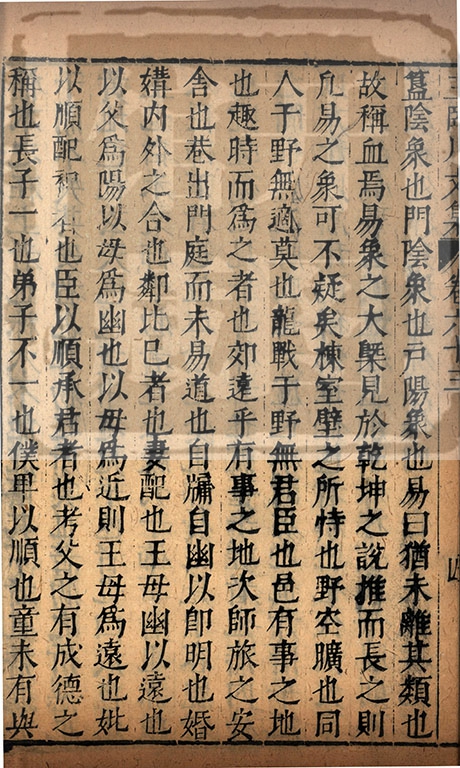 王臨川文集 卷六十三 四
簋陰象也門陰象也戸陽象也易曰猶未離其類也
故稱血焉易象之大槩見於乾坤之說推而長之則
凡易之象可不疑矣棟室壁之所恃也野空曠也同
人于野無適莫也龍戰于野無君臣也邑有事之地
也趣時而爲之者也郊遠乎有事之地次師旅之安
舍也巷出門庭而未易道也自牖自幽以即明也婚
媾内外之合也鄰比巳者也妻配也王母幽以遠也
以父爲陽以母爲幽也以母爲近則王母爲遠也妣
以順配祖者也臣以順承君者也考父之有成德之
稱也長子一也弟子不一也僕卑以順也童未有與